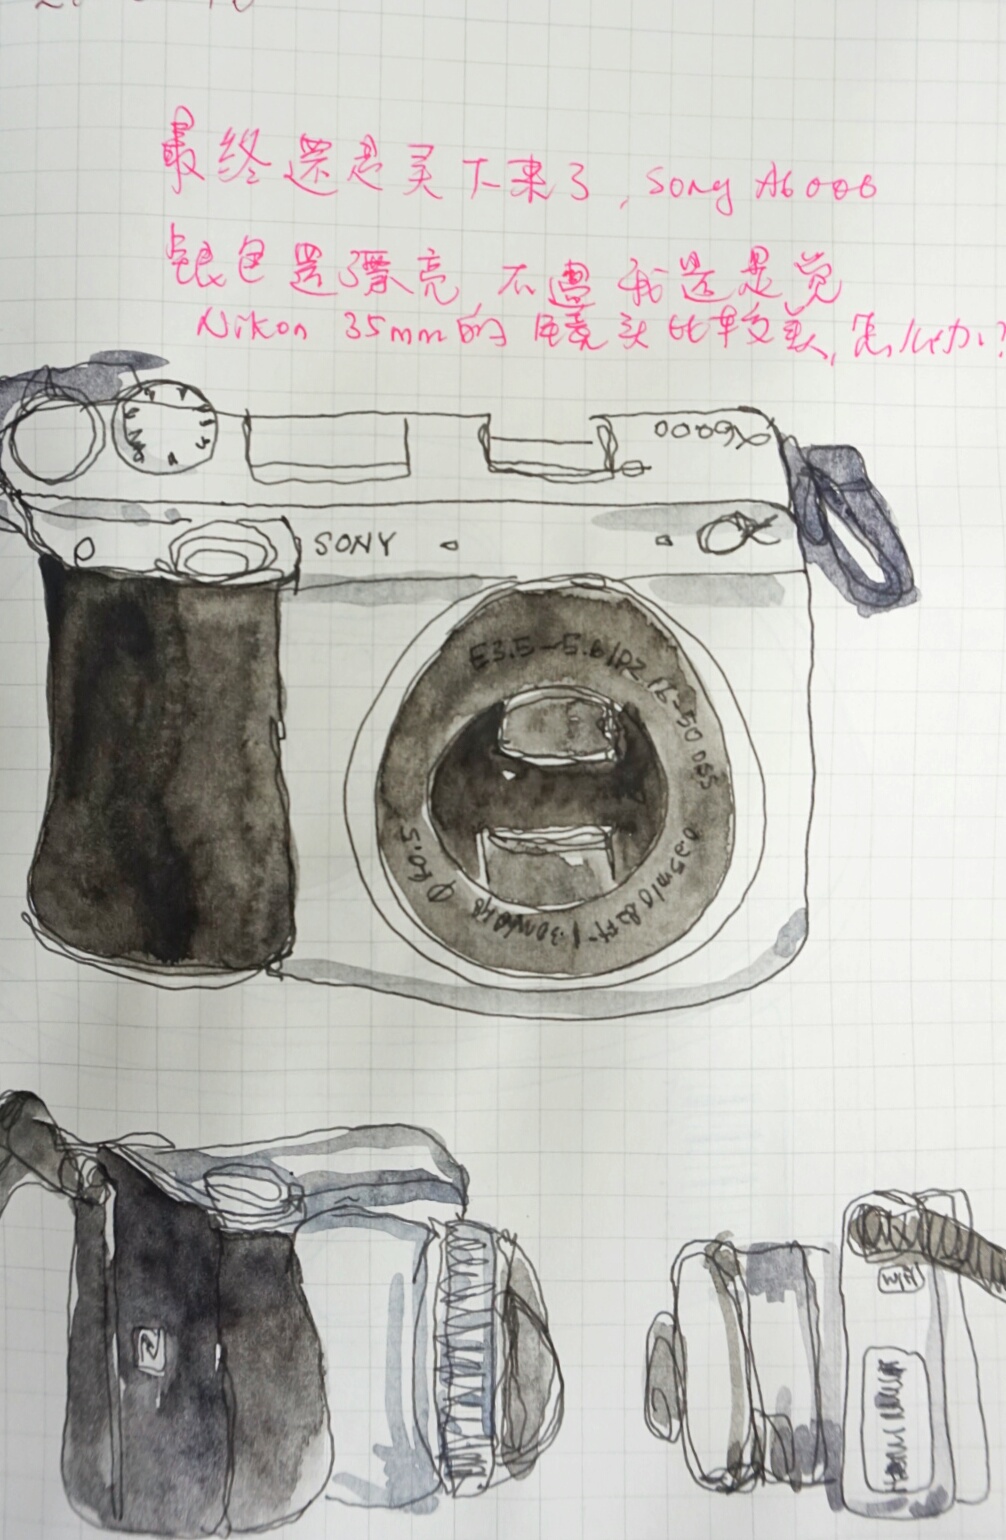 最终还是买下来了, Sony A6000
银色是漂亮, 不过我还是觉
Nikon 35mm的镜头比较美, 怎么办?
α6000
SONY
α
E3.5-5.6/PZ 16-50 OSS
0.25m/0.82ft-
Φ40.5